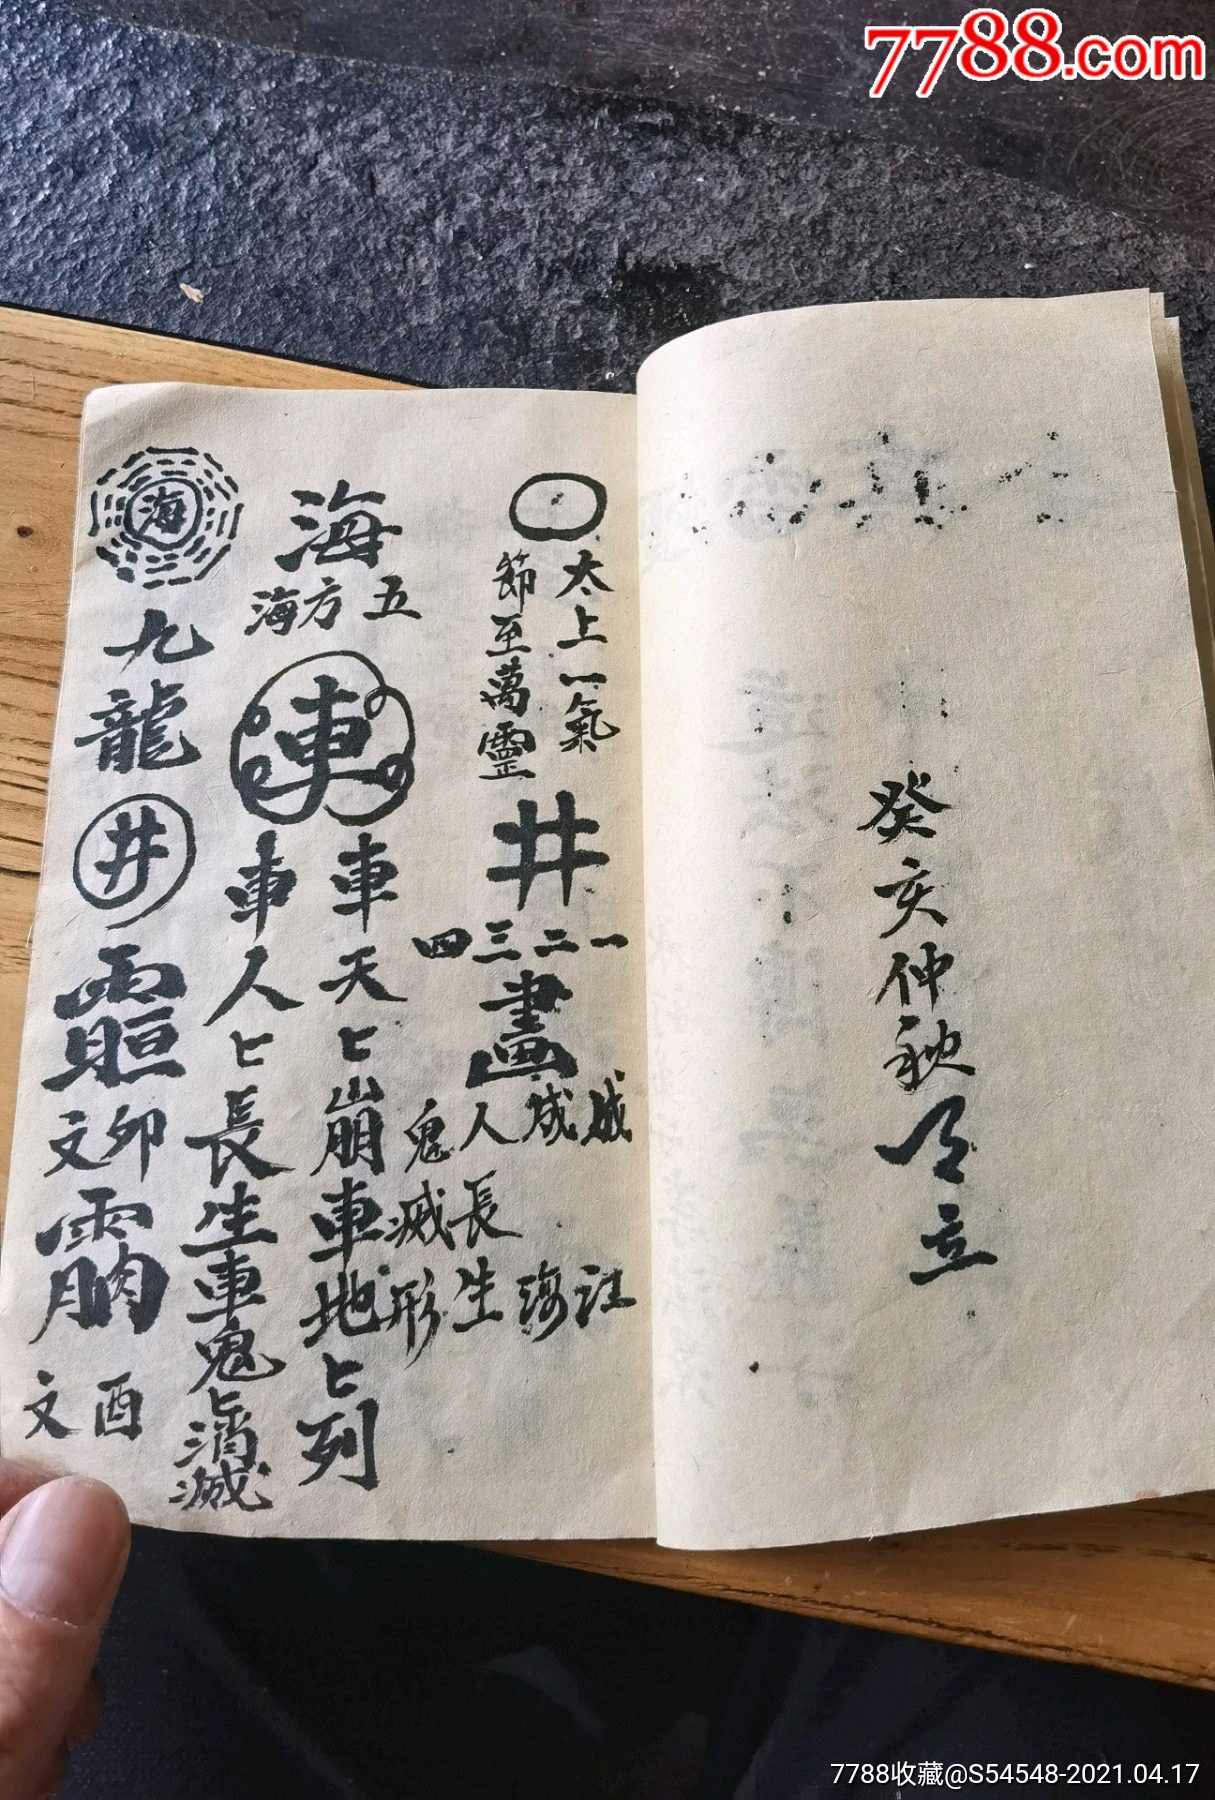 7788.com
癸亥仲秋
立
太上一氣
節至萬靈
井
一二三四
畫
城
成
人長生
鬼滅形
江
海
海
五方海
車
車天匕崩車地匕列
車人匕長生車鬼匕消滅
海
九龍
井
卯文
酉文
7788收藏@S54548-2021.04.17